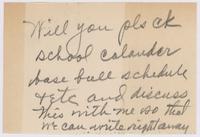 Will you pls ck
school calander
base ball schedule
+ etc and discuss
this with me so that
we can write right away